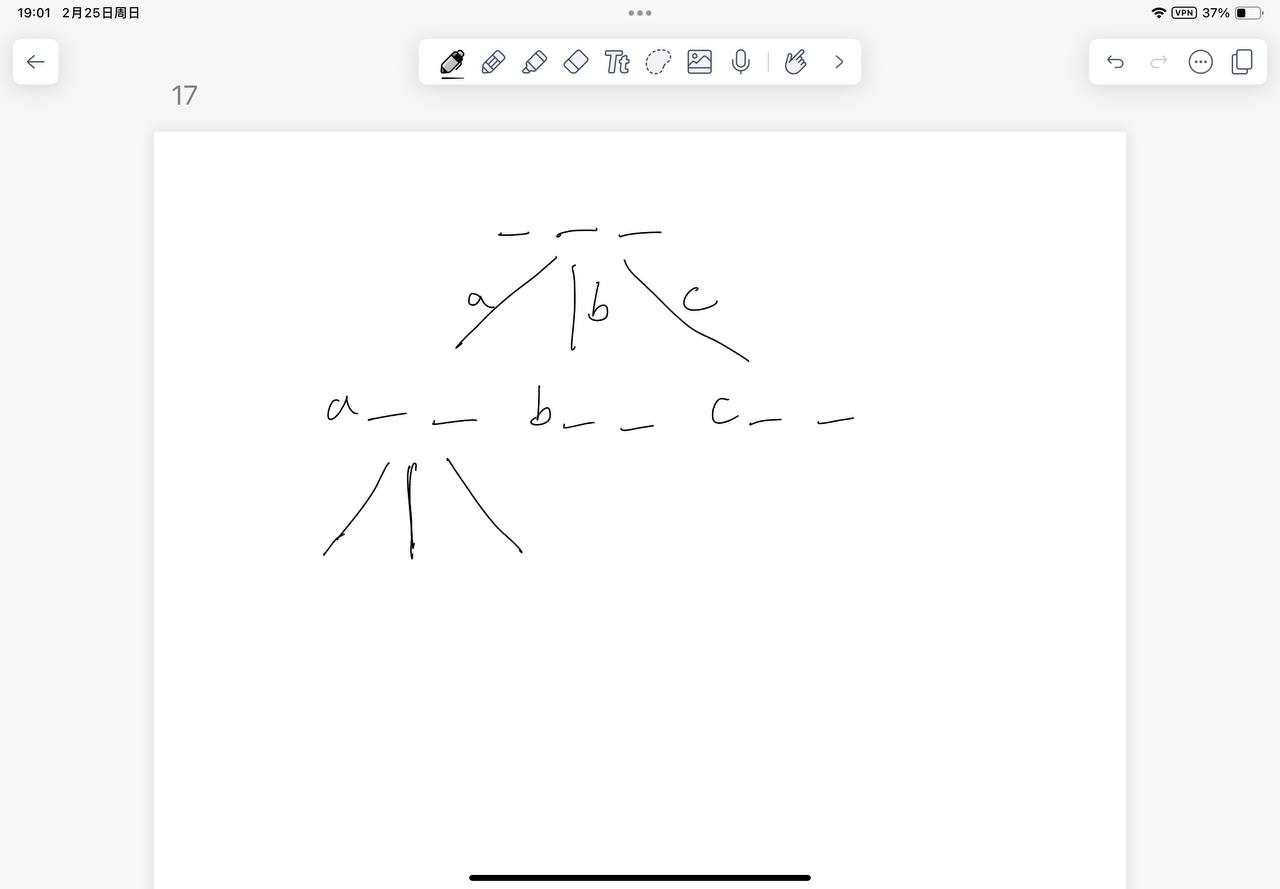 19:01 2月25日周日
VPN 37%
Tt
17
_ _ _
a b c
a _ _ b _ _ c _ _